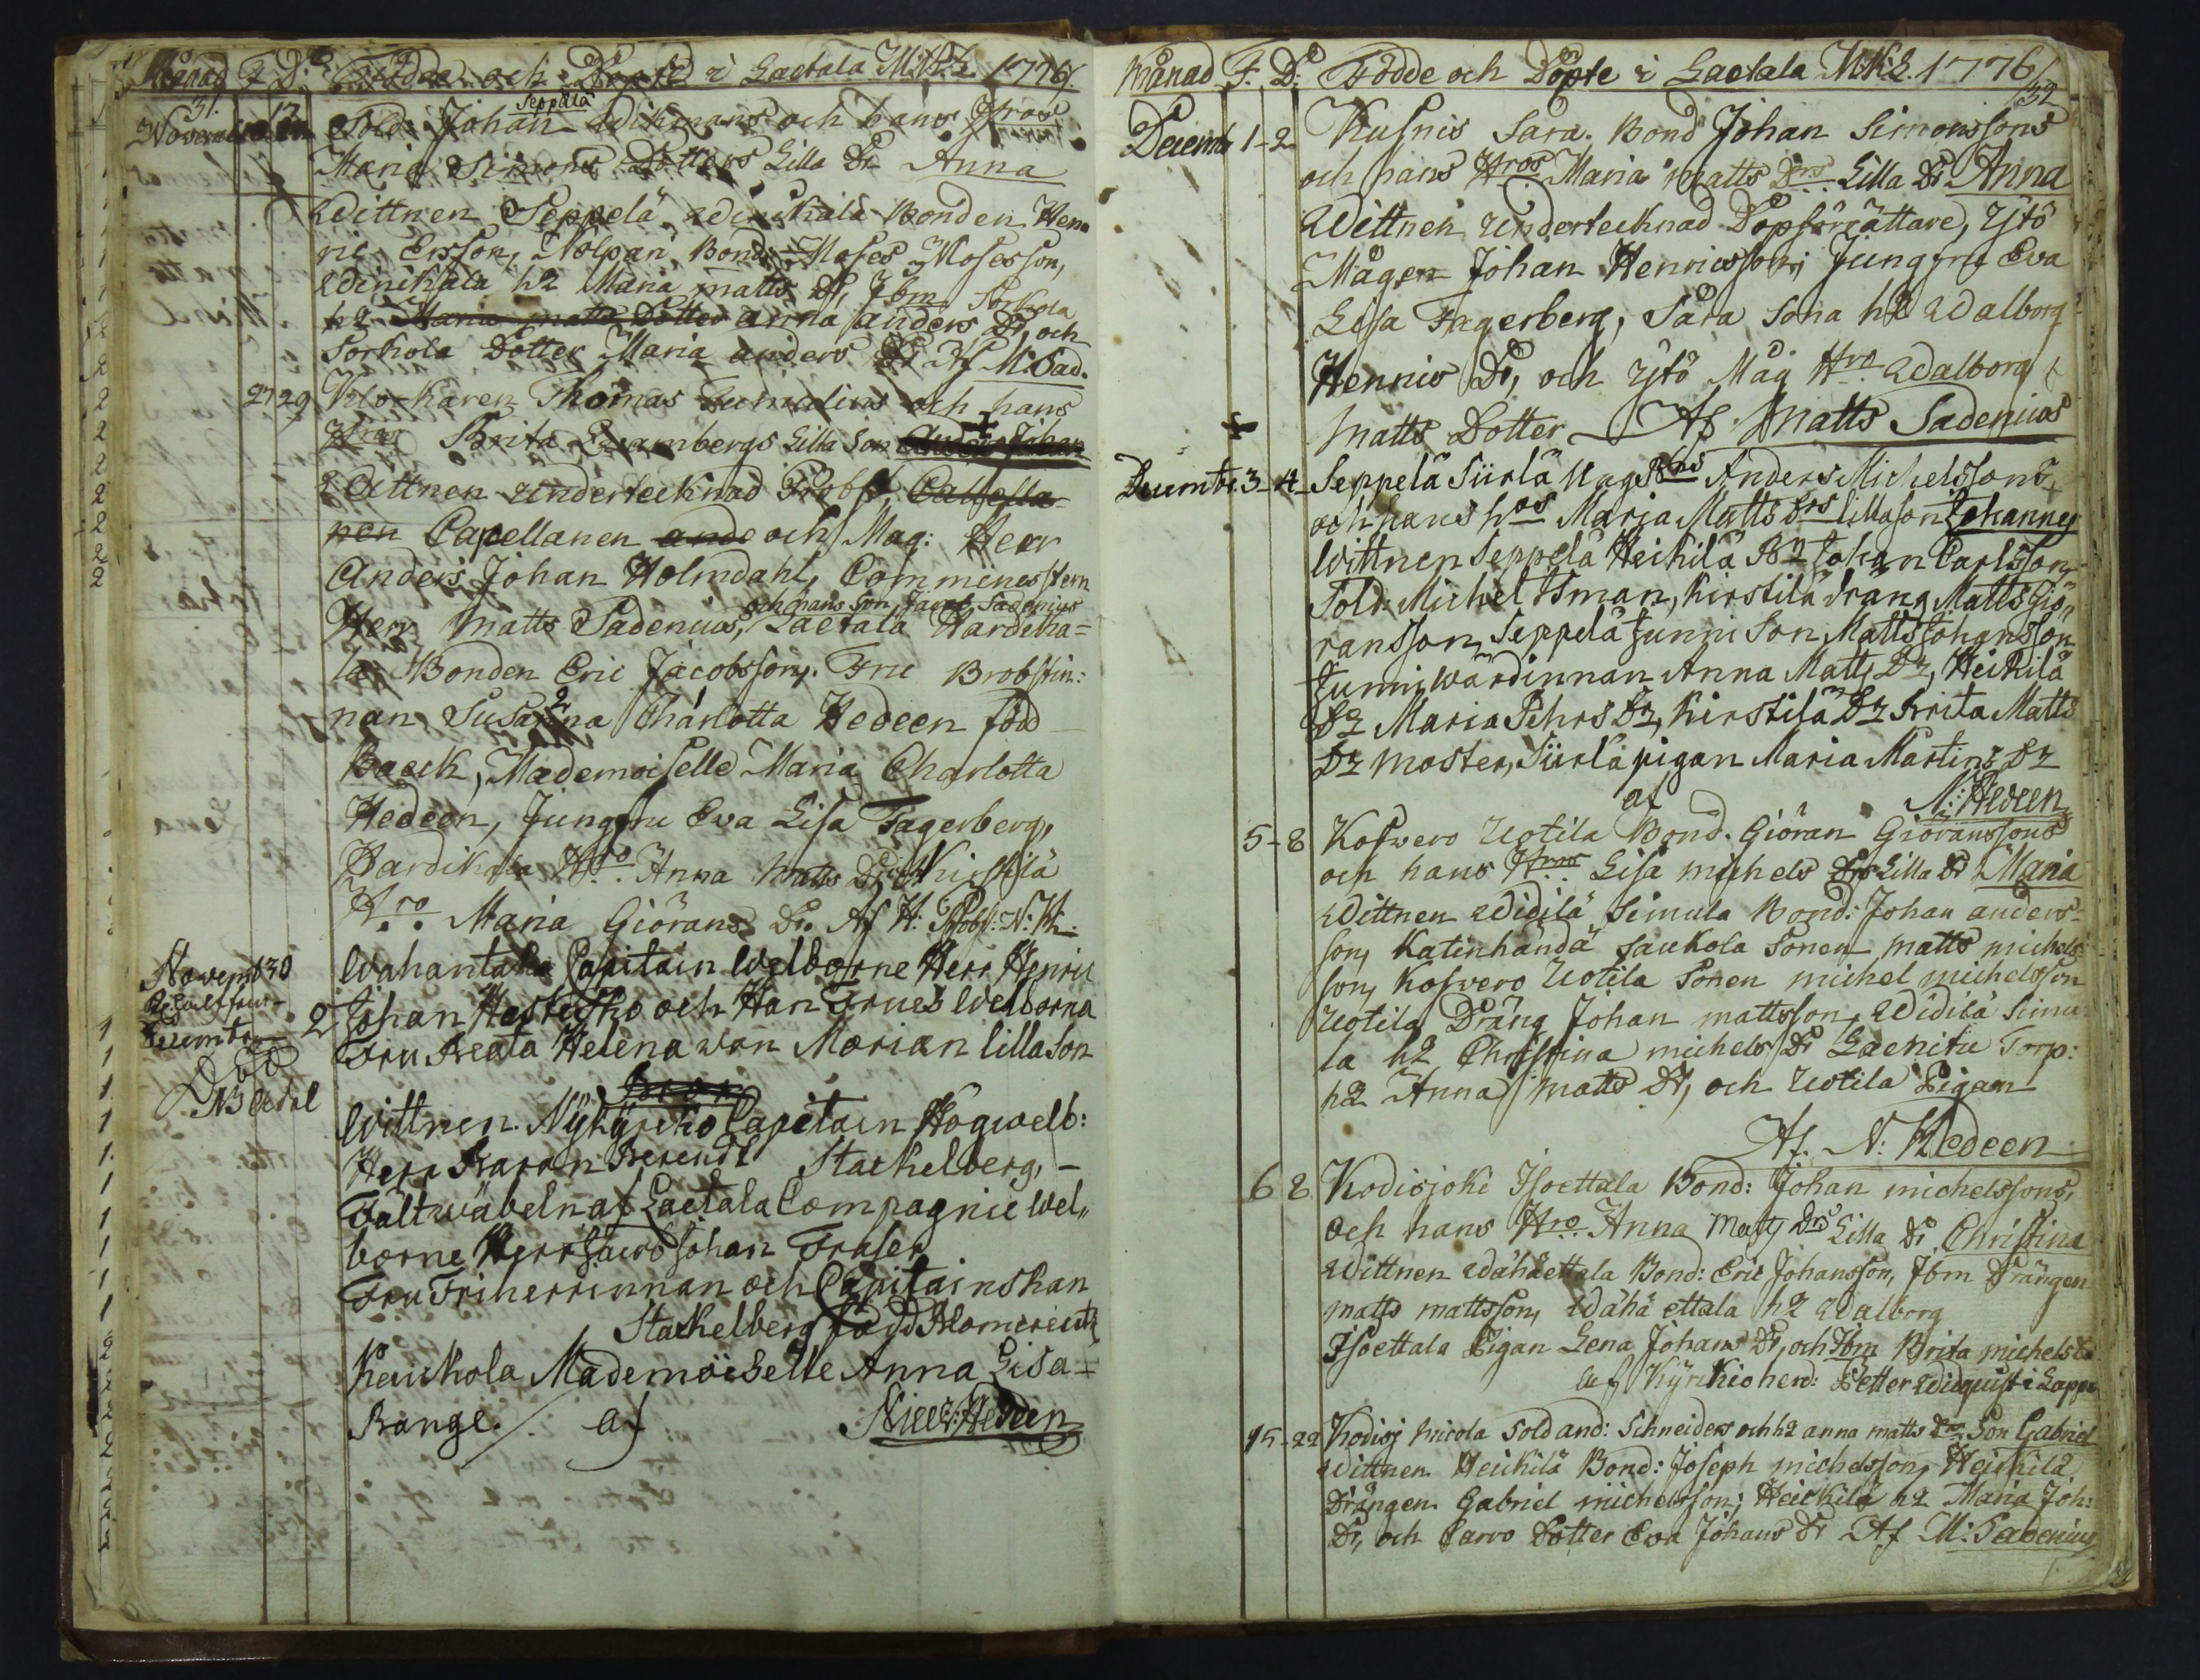 Månad F. D: Födde och Döpte i Laetala M.K.L. 1776.
31. 17
Novemb
Seppälä
Sold: Johan Wikmans och hans Hros
Maria Simons Dotters Lilla Dr Anna
Wittnen Seppelä Winikala Bonden Hen
ric Ersson, Nolpari Bond: Moses Mosesson,
Winikala h2 Maria matts Dr, Ibm Sorkola
h2 Maria matts Dotter anna anders Dr, och
Sorkola Dotter Maria anders Dr Af M: Sad.
27 29 Klockaren Thomas Lumelius och hans
Hros Brita Brambergs Lilla Son Anders Johan
Wittnen undertecknad Probst, Cappella
nen Capellanen ande och Mag: Herr
Anders Johan Holmdahl, Comministern
och hans son Jacob Sadenius
Herr Matts Sadenius, Laetala Hardika=
la Bonden Eric Jacobsson, Fru Brobstin:
nan Susanna Charlotta Hedeen född
Baeck, Mademoiselle Maria Charlotta
Hedeen, Jungfru Eva Lisa Fagerberg,
Hardikala Hro Anna Matts Dr Kirstilä
Hro Maria Giörans Dr. Af H: Probst: N: H:
Novemb 30
Decembr 2
Wahantaka Capitain Welborne Herr Henric
Johan Hästesko och Han Frues Welborna
Fru Beata Helena von Morian lilla Son
Wittnen. Nykyrcko Capitain Högwelb:
Herr Baron Berendt Stackelberg, -
Fältwäbeln af Laetala Compagnie Wel,,
borne Herr Jacob Johan Fraser
Fru Friherrinnan och Capitainskan
Stackelberg född Blomcreutz
Kauckola Mademöiselle Anna Lisa=
Bange. af Nicol: Hedeen
Månad F. D: Födde och Döpte i Laetala M.K.L. 1776/
32
Decemb 1-2 Kusnis Sara. Bond Johan Simonssons
och hans Hros Maria Matts Drs Lilla Dr Anna
Wittnen undertecknad Dopförrättare, Ytö
Mågen Johan Henricsson, Jungfru Eva
Lisa Fagerberg, Sara Sona h2 Walborg
Henrics Dr, och Ytö Måg Hro Walborg
Matts Dotter Af Matts Sadenius
Decembr. 3-4 Seppelä Siirlä Ung Bns Anders Michelssons,
och hans hos Maria Matts Drs lilla son Johannes
Wittnen Seppelä Heikilä Bn Johan Carlsson
Sold. Michel Isman, Kirstilä dräng Matts Giö,,
ransson, Seppelä Junni Son Matts Johansson
Junni Wärdinnan Anna Matts Dr, Heikilä
Dr Maria Pehrs Dr, Kirstilä Dr Brita Matts
Dr Moster, Siirlä pigan Maria Martins Dr
af N: Hedeen
5-8 Koswero Uotila Bond. Giöran Giöranssons
och hans Hros Lisa michels Drs Lilla Dr Maria
Wittnen Widilä Simula Bond: Johan anders-
son, Katinhändä Saukola Sonen matts michels-
son, Koswero Uotila Sonen michel michelsson
Uotila Dräng Johan mattsson, Widilä Simu
la h2 Christina michels Dr Laenitie Torp:
h2 Anna matts Dr, och Uotila Pigan
Af. N: Hedeen
6 8 Kodisjoki Isoettala Bond: Johan michelssons,
och hans Hro Anna Matts Drs Lilla Dr Christina
Wittnen Wähäettala Bond: Eric Johansson, Ibm Drängen
matts mattsson, Wähä ettala h2 Walborg
Isoettala Pigan Lena Johans Dr, och Ibm Brita michels Dr
af Kyrkioherd: Petter Widquist i Lappi
15-22 Kodisj Micola Sold and: Schneiders och h2 anna matts Drs Son Gabriel
Wittnen Heickilä Bond: Joseph michelsson, Heickilä
Drängen Gabriel michelsson, Heickilä h2 Maria Joh:
Dr, och Carvo Dotter Eva Johans Dr Af M: Sadenius